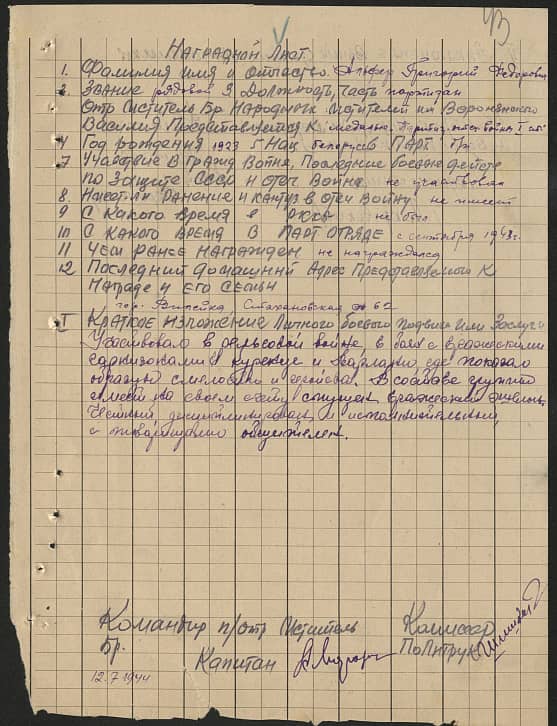 Наградной Лист
1. Фамилия имя и отчество Григорий Федорович
2. Звание рядовой 3. Должность, часть партизан
отр Мститель Бр. Народных Мстителей им Воронянского
Василия Представляется К медалью
4 Год рождения 1923 5 Нац белорус 6 ПАРТ
7 Участвие В гражд Войне, Последние боевые действ
по защите СССР и отеч Войне не участвовал
8. Имеет ли Ранение и контуз в отеч Войну не имеет
9 С Какого время в РККА не был
10 С КАКОГО ВРЕМЯ В ПАРТ ОТРЯДЕ с сентября 1943г.
11 ЧЕМ РАНЕЕ НАГРАЖДЕН не награждался
12 Последний Домашний Адрес Представляемого К
Награде и ЕГО СЕМЬИ
гор. Вилейка Стахановская 62
I КРАТКОЕ ИЗЛОЖЕНИЕ Личного боевого подвига или Заслуги
Участвовал в рельсовой войне, в боях с вражескими
гарнизонами Куренец и где показал
образцы смелости и геройства. В составе группы
имеет на своем счету спущен. вражеский эшелон.
Честный, дисциплинирован и исполнительный,
с товарищами общителен.
Командир п/отр Мститель
Комиссар
Бр.
Капитан
Политрук
12.7.1944